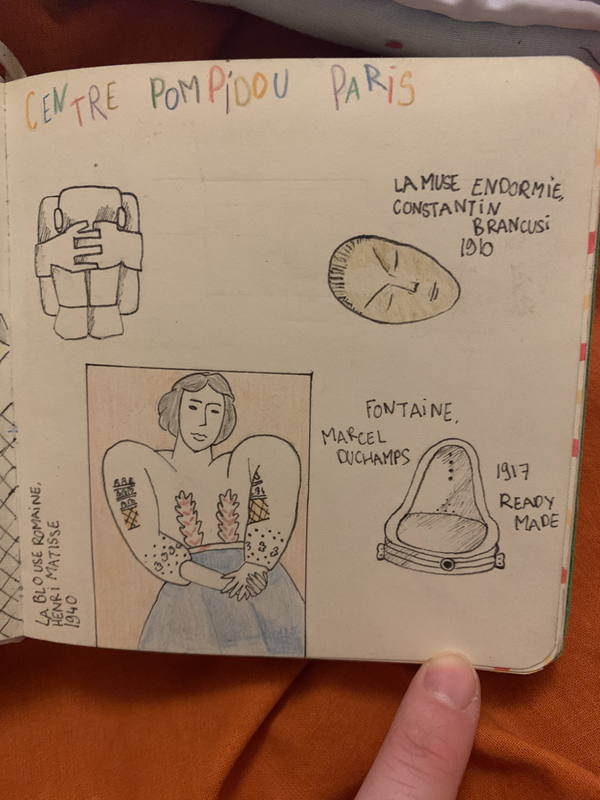 CENTRE POMPiDOU PARiS
LA MUSE ENDORMIE,
CONSTANTIN
BRANCUSi
1910
LA BLOUSE ROMAINE,
HENRI MATISSE
1940
FONTAINE,
MARCEL
DUCHAMPS
1917
READY
MADE